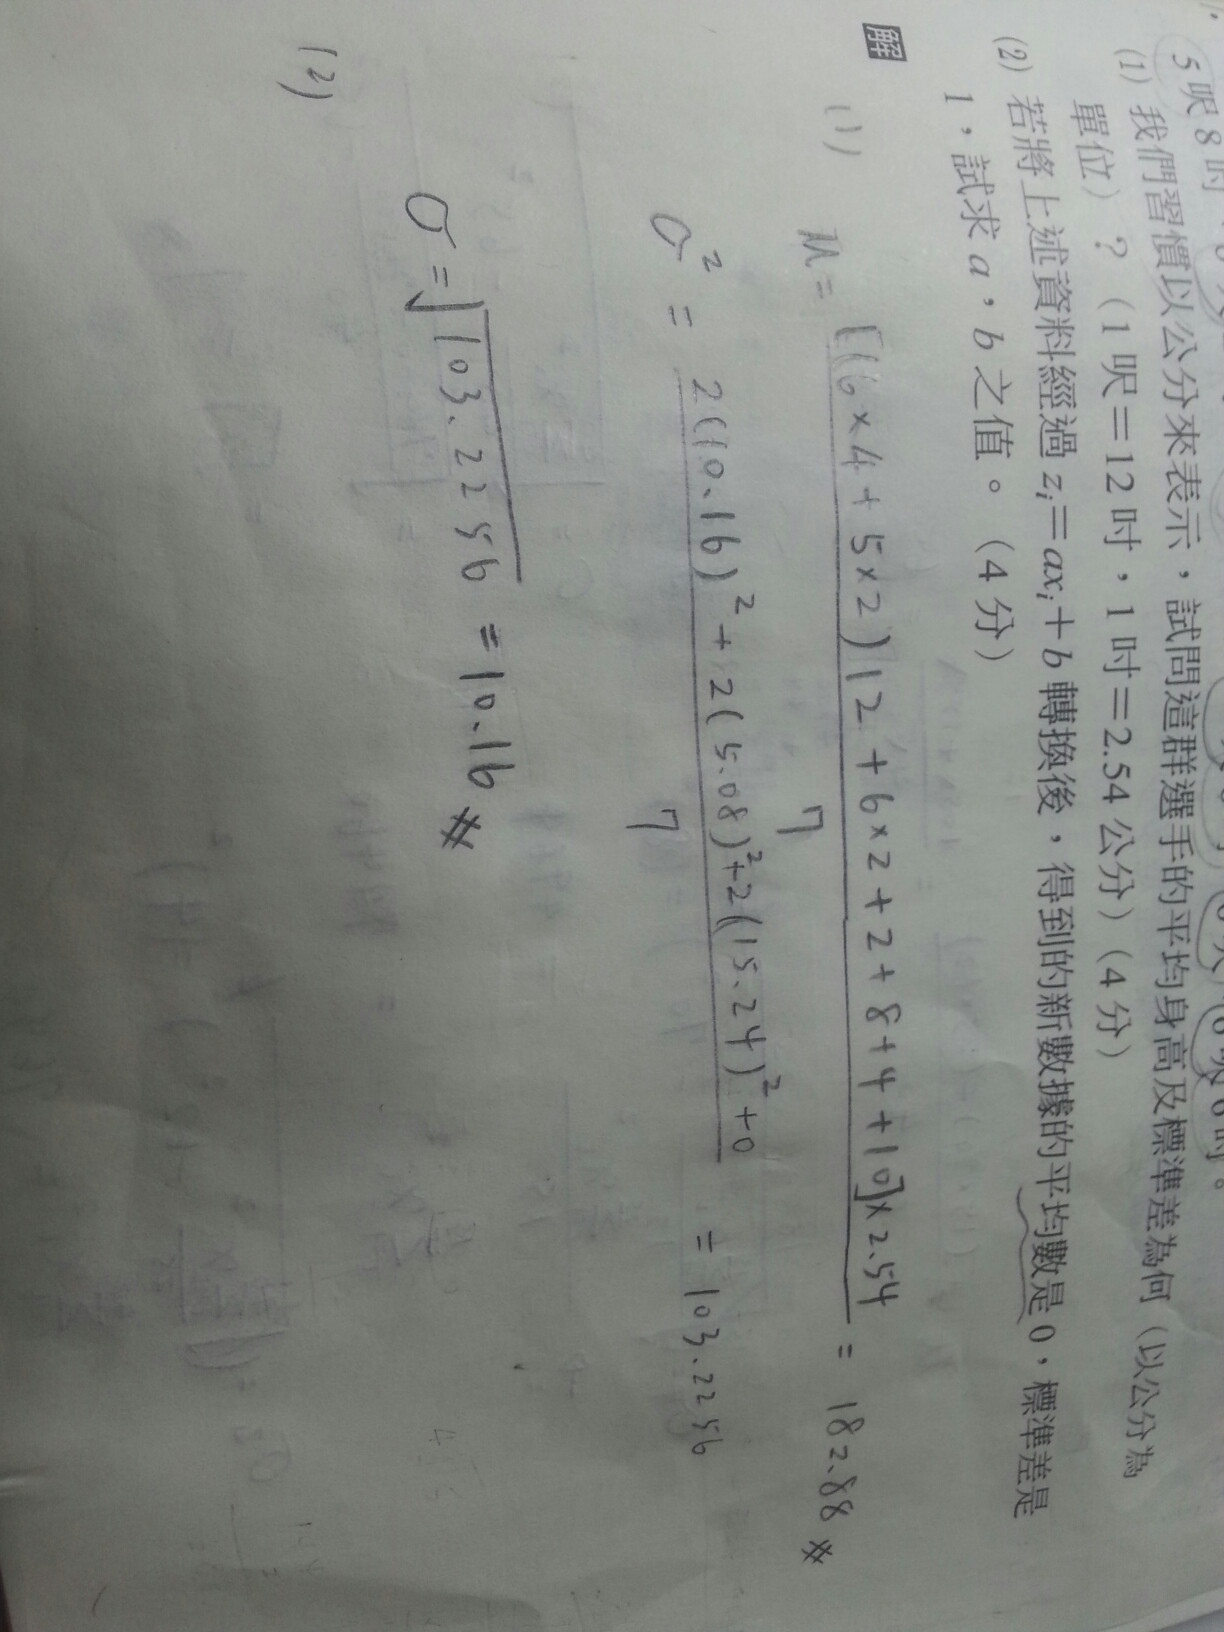 5呎8吋
6吋。
(1) 我們習慣以公分來表示，試問這群選手的平均身高及標準差為何（以公分為
單位）？（1呎＝12吋，1吋＝2.54公分）（4分）
(2) 若將上述資料經過 zᵢ＝axᵢ＋b 轉換後，得到的新數據的平均數是0，標準差是
1，試求a，b之值。（4分）
解
(1) M = [(6×4+5×2)12+6×2+2+8+4+10]×2.54 / 7 = 182.88 ※
σ² = 2(10.16)²+2(5.08)²+2(15.24)²+0 / 7 = 103.2256
σ = √103.2256 = 10.16 ※
(2)